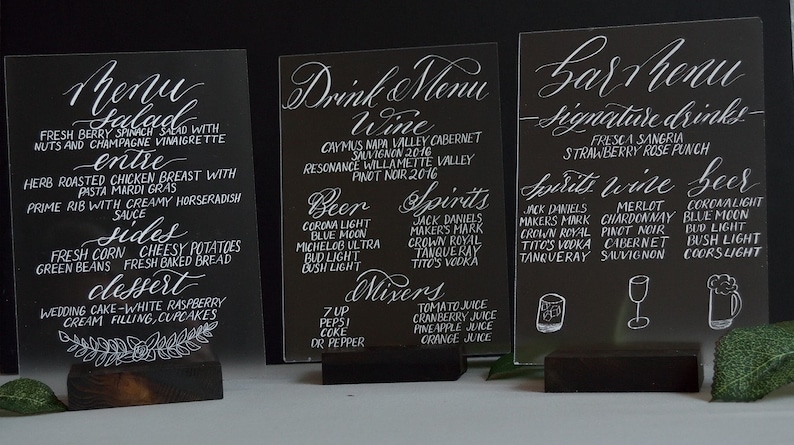 Menu
salad
FRESH BERRY SPINACH SALAD WITH
NUTS AND CHAMPAGNE VINAIGRETTE
entre
HERB ROASTED CHICKEN BREAST WITH
PASTA MARDI GRAS
PRIME RIB WITH CREAMY HORSERADISH
SAUCE
sides
FRESH CORN CHEESY POTATOES
GREEN BEANS FRESH BAKED BREAD
dessert
WEDDING CAKE-WHITE RASPBERRY
CREAM FILLING, CUPCAKES
Drink Menu
Wine
CAYMUS NAPA VALLEY CABERNET
SAUVIGNON 2016
RESONANCE WILLAMETTE VALLEY
PINOT NOIR 2016
Beer
CORONA LIGHT
BLUE MOON
MICHELOB ULTRA
BUD LIGHT
BUSH LIGHT
Spirits
JACK DANIELS
MAKER'S MARK
CROWN ROYAL
TANQUERAY
TITO'S VODKA
Mixers
7 UP
PEPSI
COKE
DR PEPPER
TOMATO JUICE
CRANBERRY JUICE
PINEAPPLE JUICE
ORANGE JUICE
Bar Menu
signature drinks
FRESCA SANGRIA
STRAWBERRY ROSE PUNCH
Spirits
JACK DANIELS
MAKERS MARK
CROWN ROYAL
TITO'S VODKA
TANQUERAY
wine
MERLOT
CHARDONNAY
PINOT NOIR
CABERNET
SAUVIGNON
beer
CORONA LIGHT
BLUE MOON
BUD LIGHT
BUSH LIGHT
COORS LIGHT